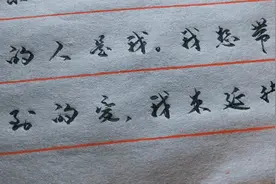 的人是我。我想带
的爱，我来